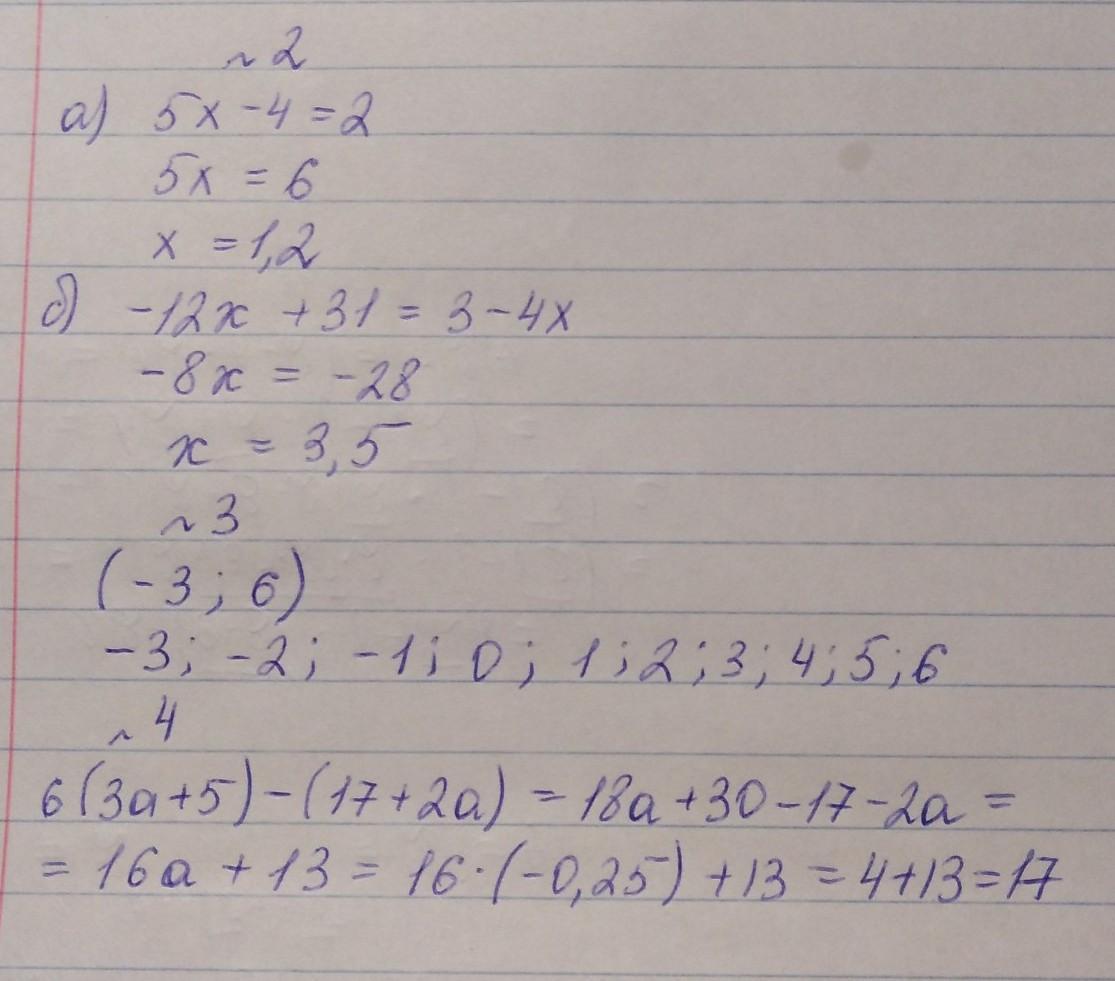 ~ 2
а) 5x - 4 = 2
5x = 6
x = 1,2
б) -12x + 31 = 3 - 4x
-8x = -28
x = 3,5
~ 3
(-3; 6)
-3; -2; -1; 0; 1; 2; 3; 4; 5; 6
~ 4
6(3a+5)-(17+2a) = 18a+30-17-2a =
= 16a + 13 = 16·(-0,25) + 13 = 4+13=17